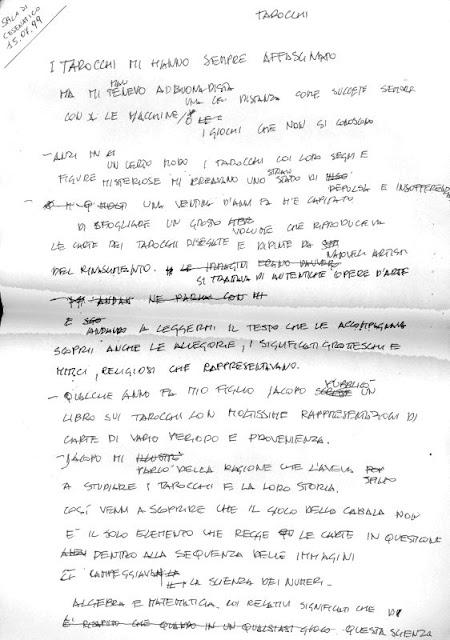 SALA DI
CESENATICO
15.07.99
TAROCCHI
I TAROCCHI MI HANNO SEMPRE AFFASCINATO
MA MI TENEVO AD BUONA DISTA
UNA DISTANZA COME SUCCEDE SEMPRE
CON LE MACCHINE / O
I GIOCHI CHE NON SI CONOSCONO
- ANZI IN
UN CERTO MODO I TAROCCHI COI LORO SEGNI E
FIGURE MISTERIOSE MI CREAVANO UNO STRANO STATO DI
REPULSA E INSOFFERENZA
- UNA VENTINA D'ANNI FA M'È CAPITATO
DI SFOGLIARE UN GROSSO
VOLUME CHE RIPRODUCEVA
LE CARTE DEI TAROCCHI DISEGNATE E DIPINTE DA
NOTEVOLI ARTISTI
DEL RINASCIMENTO. LE IMMAGINI ERANO DAVVERO
SI TRATTAVA DI AUTENTICHE OPERE D'ARTE
- ANDAI NE PARLAI CON
E
ANDANDO A LEGGERMI IL TESTO CHE LE ACCOMPAGNAVA
SCOPRII ANCHE LE ALLEGORIE, I SIGNIFICATI GROTTESCHI E
MITICI, RELIGIOSI CHE RAPPRESENTAVANO.
- QUALCHE ANNO FA MIO FIGLIO JACOPO PUBBLICÒ UN
LIBRO SUI TAROCCHI CON MOLTISSIME RAPPRESENTAZIONI DI
CARTE DI VARIO PERIODO E PROVENIENZA.
- JACOPO MI
PARLÒ DELLA RAGIONE CHE L'AVEVA
SPINTO
A STUDIARE I TAROCCHI E LA LORO STORIA.
COSÌ VENNI A SCOPRIRE CHE IL GIOCO DELLA CABALA NON
È IL SOLO ELEMENTO CHE REGGE LE CARTE IN QUESTIONE
DENTRO ALLA SEQUENZA DELLE IMMAGINI
CI CAMPEGGIAVA
LA SCIENZA DEI NUMERI -
ALGEBRA E MATEMATICA COI RELATIVI SIGNIFICATI CHE DI
È RISAPUTO CHE QUANDO IN UN QUALSIASI GIOCO QUESTA SCIENZA